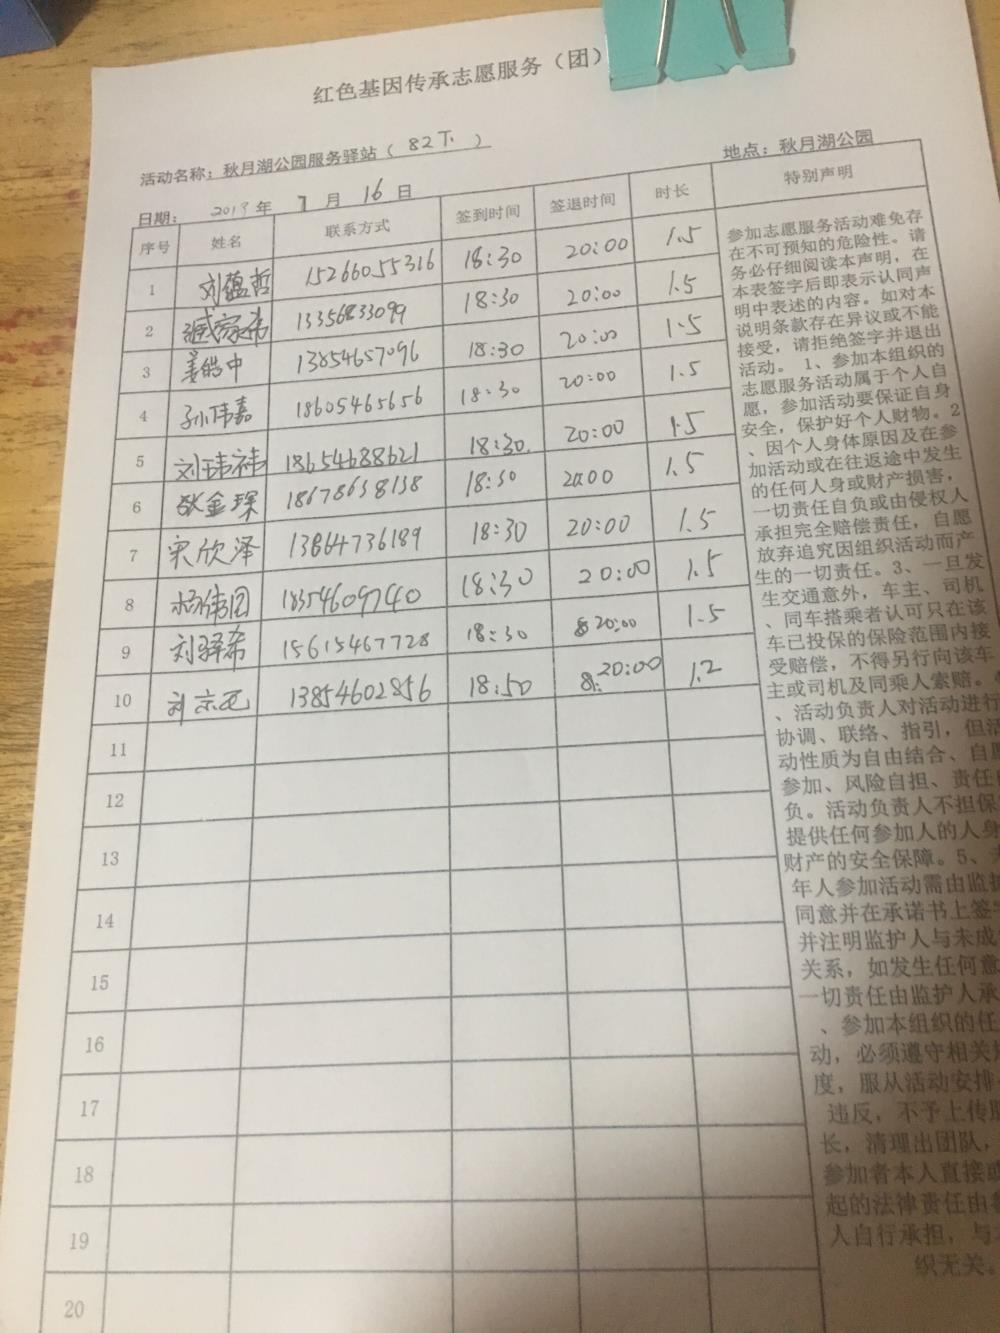 红色基因传承志愿服务（团）
活动名称：秋月湖公园服务驿站（82下）
地点：秋月湖公园
日期： 2019 年 7 月 16 日
序号 姓名 联系方式 签到时间 签退时间 时长 特别声明
1 刘蕴哲 15266055316 18:30 20:00 1.5
2 臧家希 13356833099 18:30 20:00 1.5
3 姜皓中 13854657096 18:30 20:00 1.5
4 孙伟嘉 18605465656 18:30 20:00 1.5
5 刘祎 18654688621 18:30 20:00 1.5
6 张金琛 18678638138 18:30 20:00 1.5
7 宋欣泽 13864736189 18:30 20:00 1.5
8 杨伟因 18354609740 18:30 20:00 1.5
9 刘驿希 15615467728 18:30 20:00 1.5
10 刘 13854602856 18:50 20:00 1.2
11
12
13
14
15
16
17
18
19
20
参加志愿服务活动难免存
在不可预知的危险性。请
务必仔细阅读本声明，在
本表签字后即表示认同声
明中表述的内容。如对本
说明条款存在异议或不能
接受，请拒绝签字并退出
活动。 1、参加本组织的
志愿服务活动属于个人自
愿，参加活动要保证自身
安全，保护好个人财物。2
、因个人身体原因及在参
加活动或在往返途中发生
的任何人身或财产损害，
一切责任自负或由侵权人
承担完全赔偿责任，自愿
放弃追究因组织活动而产
生的一切责任。3、一旦发
生交通意外，车主、司机
、同车搭乘者认可只在该
车已投保的保险范围内接
受赔偿，不得另行向该车
主或司机及同乘人索赔。
、活动负责人对活动进行
协调、联络、指引，但活
动性质为自由结合、自愿
参加、风险自担、责任
负。活动负责人不担保
提供任何参加人的人身
财产的安全保障。5、未
年人参加活动需由监护
同意并在承诺书上签字
并注明监护人与未成
关系，如发生任何意
一切责任由监护人承
、参加本组织的任
动，必须遵守相关
度，服从活动安排
违反，不予上传
长，清理出团队，
参加者本人直接或
起的法律责任由
人自行承担，与
织无关。